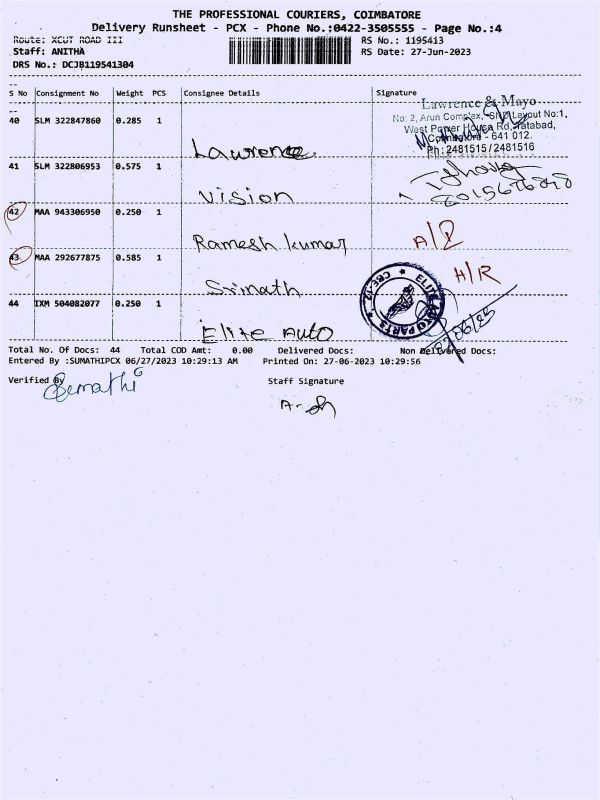 THE PROFESSIONAL COURIERS, COIMBATORE
Delivery Runsheet - PCX - Phone No.:0422-3505555 - Page No.:4
Route: XCUT ROAD III
RS No.: 1195413
Staff: ANITHA
RS Date: 27-Jun-2023
DRS No.: DCJB119541304
S No Consignment No Weight PCS Consignee Details Signature
40 SLM 322847860 0.285 1
Lawrence
Lawrence & Mayo
No: 2, Arun Complex, Layout No:1,
West Power House Rd, Tatabad,
Coimbatore - 641 012.
Ph: 2481515/2481516
41 SLM 322806953 0.575 1
Vision
42 MAA 943306950 0.250 1
Ramesh kumar
43 MAA 292677875 0.585 1
Srinath
H/R
44 IXM 504082077 0.250 1
Elite Auto
ELITE AUTO PARTS ★ CBE-12 ★
Total No. Of Docs: 44 Total COD Amt: 0.00 Delivered Docs: Non Delivered Docs:
Entered By :SUMATHIPCX 06/27/2023 10:29:13 AM Printed On: 27-06-2023 10:29:56
Verified By
Staff Signature
Sumathi